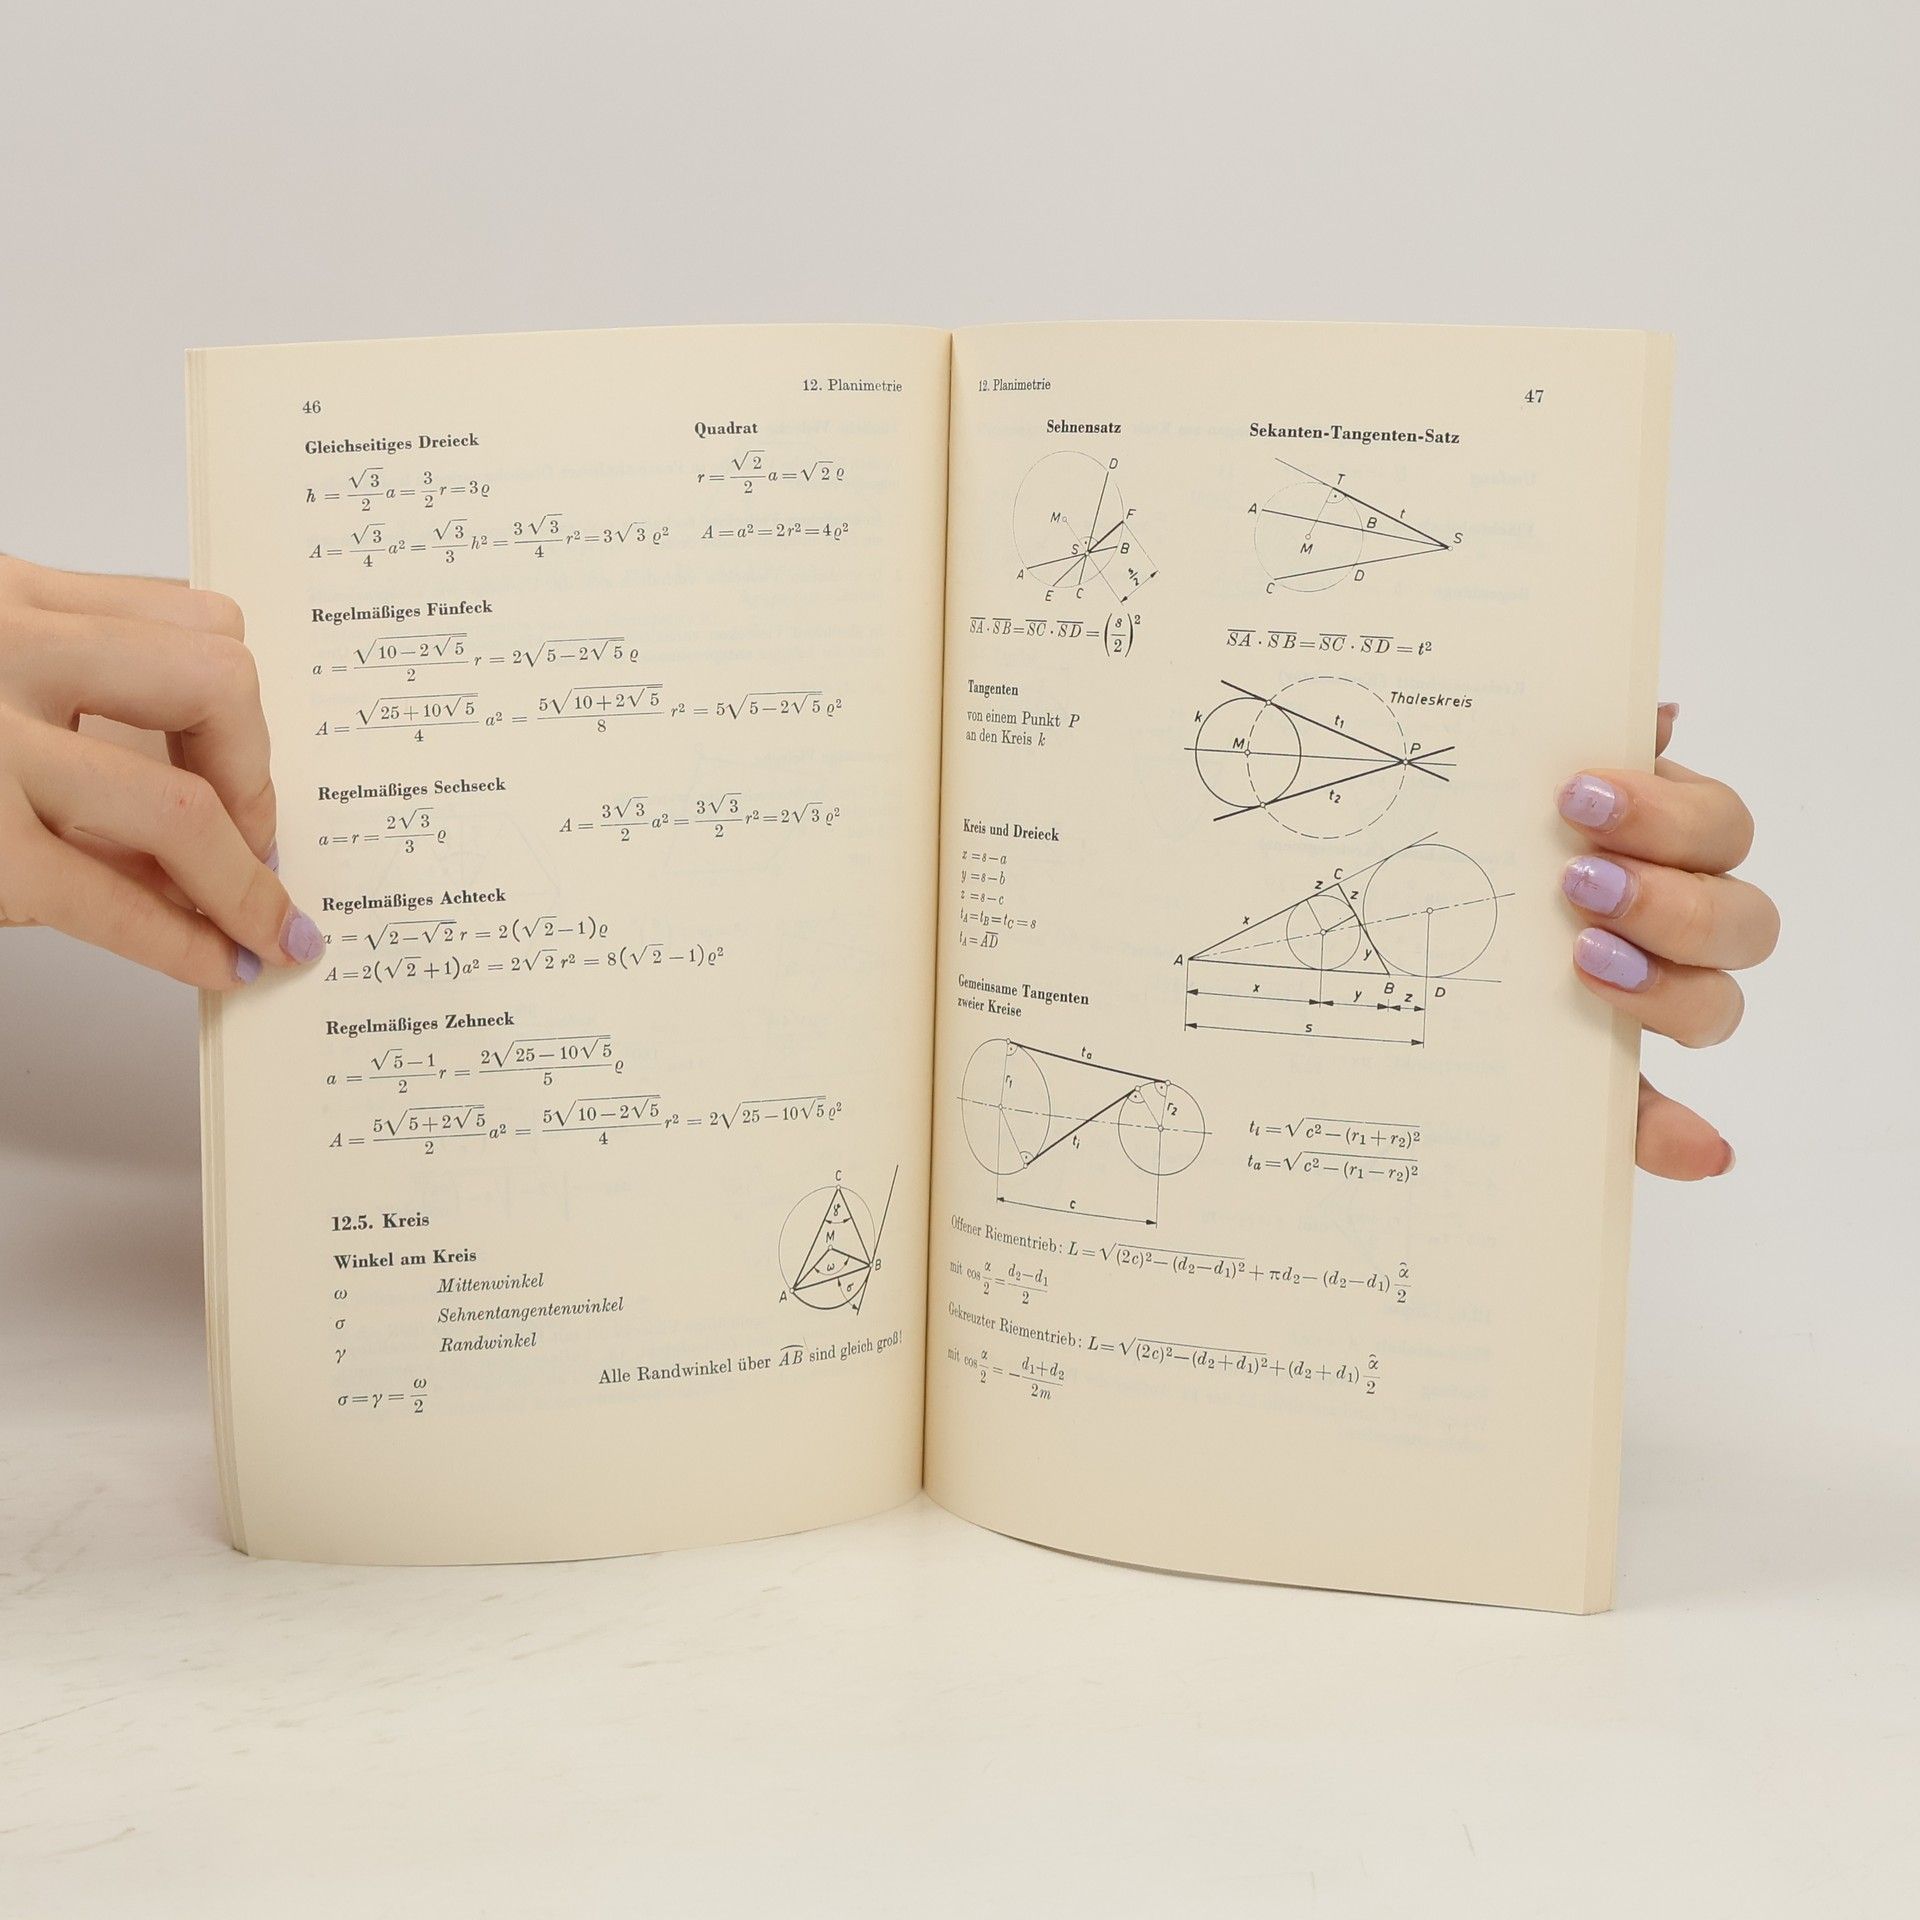 46
12. Planimetrie
Gleichseitiges Dreieck
h = √3/2 a = 3/2 r = 3ϱ
A = √3/4 a² = √3/3 h² = 3√3/4 r² = 3√3 ϱ²
Quadrat
r = √2/2 a = √2 ϱ
A = a² = 2r² = 4ϱ²
Regelmäßiges Fünfeck
a = √(10−2√5)/2 r = 2√(5−2√5) ϱ
A = √(25+10√5)/4 a² = 5√(10+2√5)/8 r² = 5√(5−2√5) ϱ²
Regelmäßiges Sechseck
a = r = 2√3/3 ϱ
A = 3√3/2 a² = 3√3/2 r² = 2√3 ϱ²
Regelmäßiges Achteck
a = √(2−√2) r = 2(√2−1)ϱ
A = 2(√2+1)a² = 2√2 r² = 8(√2−1)ϱ²
Regelmäßiges Zehneck
a = (√5−1)/2 r = 2√(25−10√5)/5 ϱ
A = 5√(5+2√5)/2 a² = 5√(10−2√5)/4 r² = 2√(25−10√5) ϱ²
12.5. Kreis
Winkel am Kreis
ω Mittenwinkel
σ Sehnentangentenwinkel
γ Randwinkel
σ = γ = ω/2
C
γ
M
ω
B
A
σ
Alle Randwinkel über AB sind gleich groß!
12. Planimetrie
47
Sehnensatz
D
M
F
S
B
A
E
C
s/2
SA · SB = SC · SD = (s/2)²
Sekanten-Tangenten-Satz
T
A
B
t
S
M
D
C
SA · SB = SC · SD = t²
Tangenten
von einem Punkt P
an den Kreis k
Thaleskreis
k
t₁
M
P
t₂
Kreis und Dreieck
x = s−a
y = s−b
z = s−c
tA = tB = tC = s
tA = AD
C
z
z
x
y
A
B
D
x
y
z
s
Gemeinsame Tangenten
zweier Kreise
ta
r₁
r₂
ti
c
ti = √(c²−(r₁+r₂)²)
ta = √(c²−(r₁−r₂)²)
Offener Riementrieb: L = √((2c)²−(d₂−d₁)²) + πd₂ − (d₂−d₁) α̂/2
mit cos α/2 = (d₂−d₁)/2
Gekreuzter Riementrieb: L = √((2c)²−(d₂+d₁)²) + (d₂+d₁) α̂/2
mit cos α/2 = −(d₁+d₂)/2m